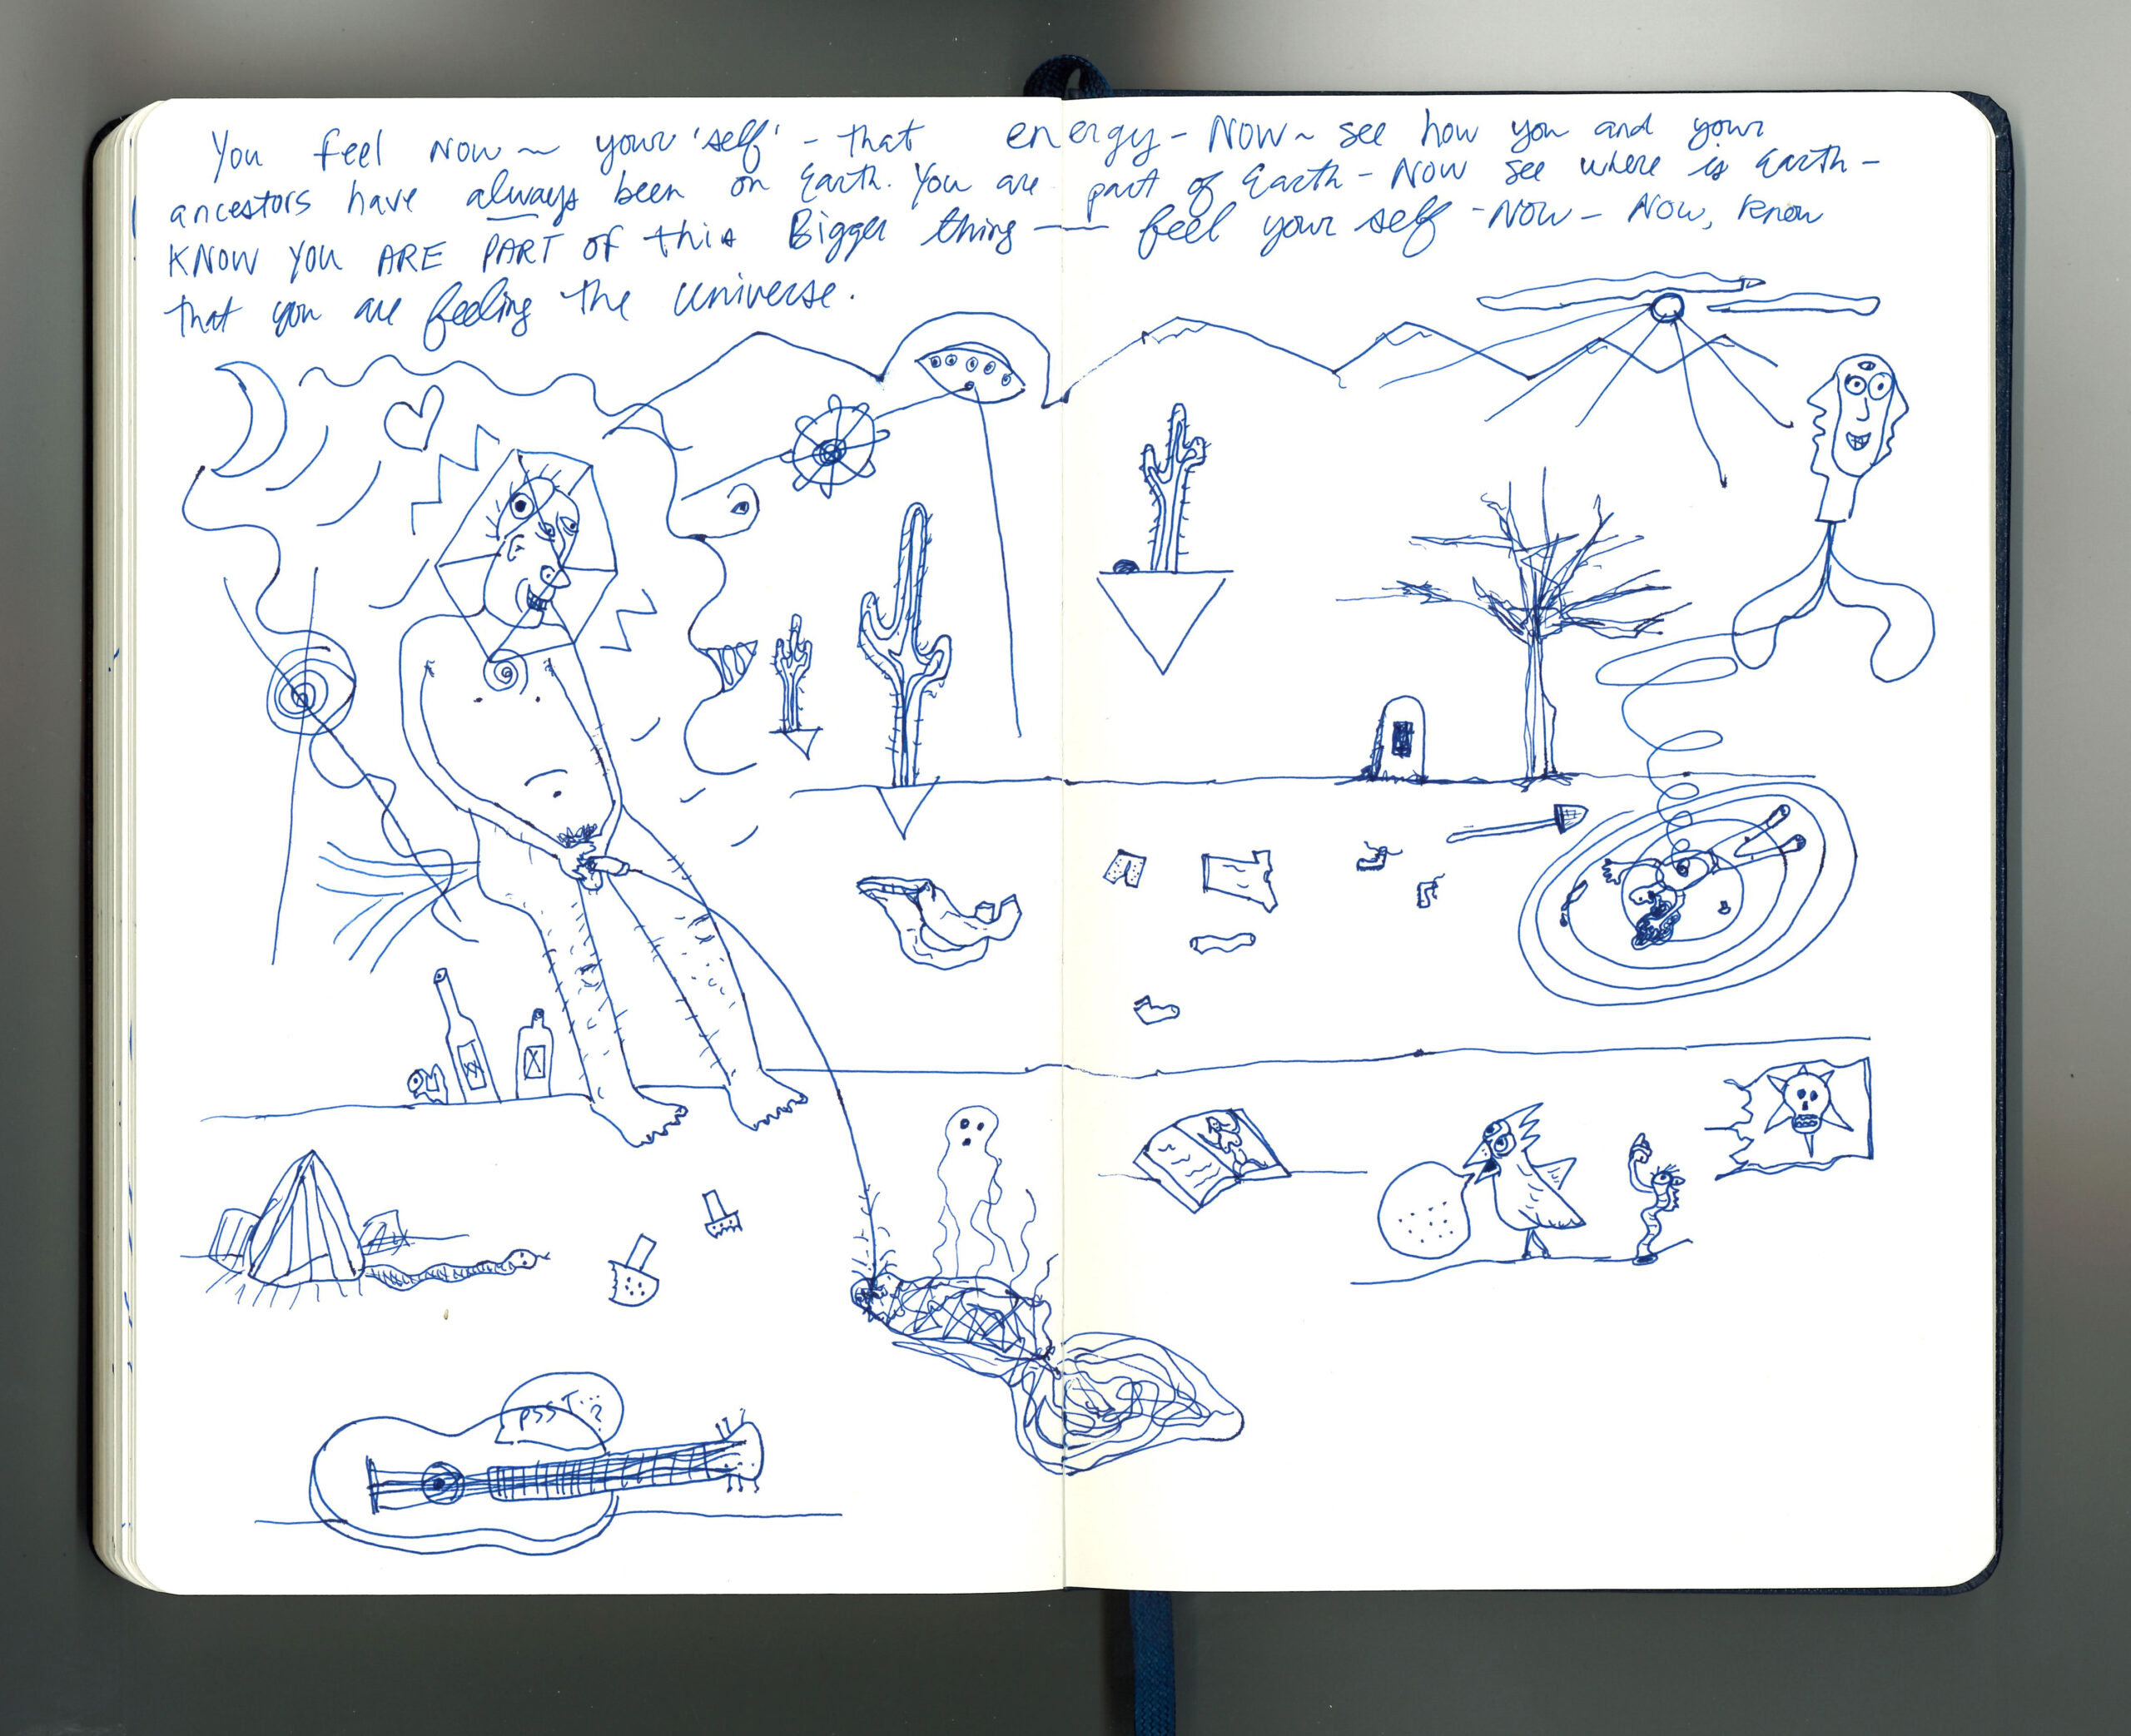 You feel NOW ~ your 'self' - that energy - NOW ~ see how you and your
ancestors have always been on Earth. You are part of Earth - NOW see where is Earth -
KNOW YOU ARE PART OF this Bigger thing — feel your self - NOW - NOW, know
that you are feeling the universe.
XX
X
PSST...?